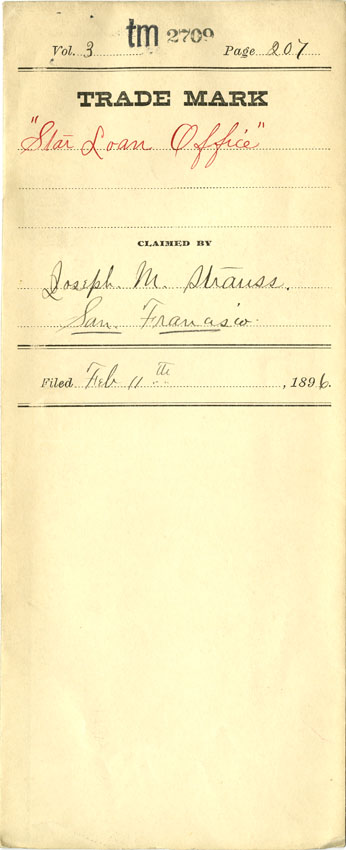 tm 2709
Vol. 3 Page 207
TRADE MARK
"Star Loan Office"
CLAIMED BY
Joseph M. Strauss.
San Francisco.
Filed Feb 11th, 1896.